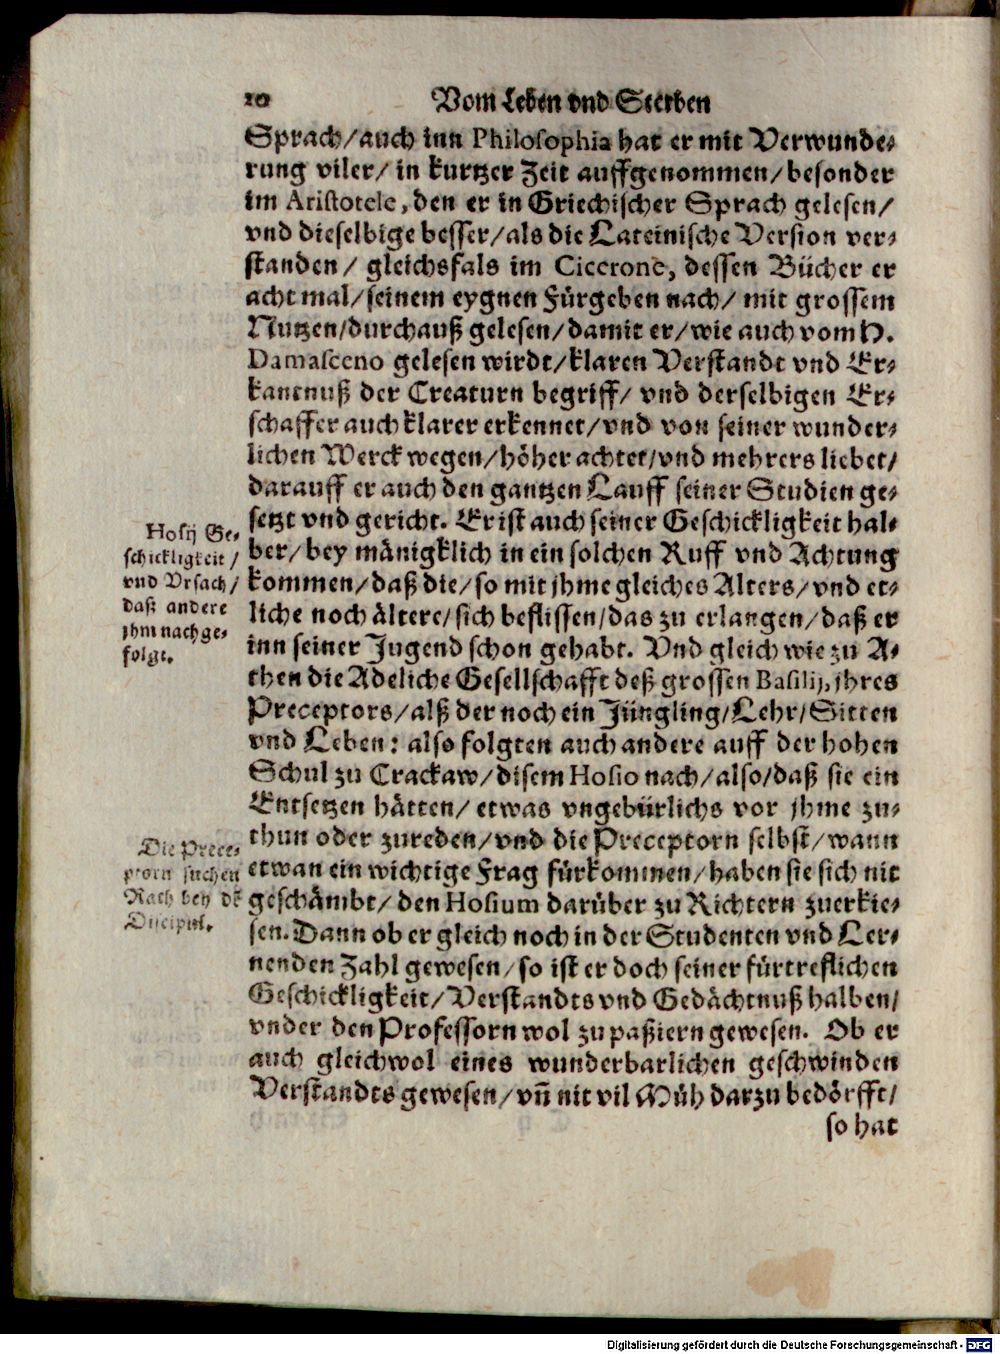 10 Vom Leben vnd Sterben
Sprach/auch inn Philosophia hat er mit Verwunde-
rung viler/ in kurtzer Zeit auffgenommen/ besonder
im Aristotele, den er in Griechischer Sprach gelesen/
vnd dieselbige besser/als die Lateinische Version ver-
standen/ gleichsfals im Cicerone, dessen Bücher er
acht mal/seinem eygnen Fürgeben nach/ mit grossem
Nutzen/durchauß gelesen/damit er/wie auch vom H.
Damasceno gelesen wirdt/klaren Verstandt vnd Er-
kantnuß der Creaturn begriff/ vnd derselbigen Er-
schaffer auch klarer erkennet/vnd von seiner wunder-
lichen Werck wegen/höher achtet/vnd mehrers liebet/
darauff er auch den gantzen Lauff seiner Studien ge-
setzt vnd gericht. Er ist auch seiner Geschickligkeit hal-
ber/ bey mänigklich in ein solchen Ruff vnd Achtung
kommen/daß die/so mit jhme gleiches Alters/vnd et-
liche noch ältere/sich beflissen/das zu erlangen/daß er
inn seiner Jugend schon gehabt. Vnd gleich wie zu A-
then die Adeliche Gesellschafft deß grossen Basilij, jhres
Preceptors/alß der noch ein Jüngling/Lehr/Sitten
vnd Leben: also folgten auch andere auff der hohen
Schul zu Crackaw/disem Hosio nach/also/daß sie ein
Entsetzen hätten/ etwas vngebürlichs vor jhme zu-
thun oder zureden/vnd die Preceptorn selbst/wann
etwan ein wichtige Frag fürkommen/haben sie sich nit
geschämbt/den Hosium darüber zu Richtern zuerkie-
sen. Dann ob er gleich noch in der Studenten vnd Ler-
nenden Zahl gewesen/so ist er doch seiner fürtreflichen
Geschickligkeit/Verstandts vnd Gedächtnuß halben/
vnder den Professorn wol zu paßiern gewesen. Ob er
auch gleichwol eines wunderbarlichen geschwinden
Verstandts gewesen/vñ nit vil Müh darzu bedörfft/
so hat
Hosij Ge-
schickligkeit/
vnd Vrsach/
daß andere
jhm nachge-
folgt.
Die Prece-
ptorn suchen
Rath bey dẽ
Discipul.
Digitalisierung gefördert durch die Deutsche Forschungsgemeinschaft - DFG